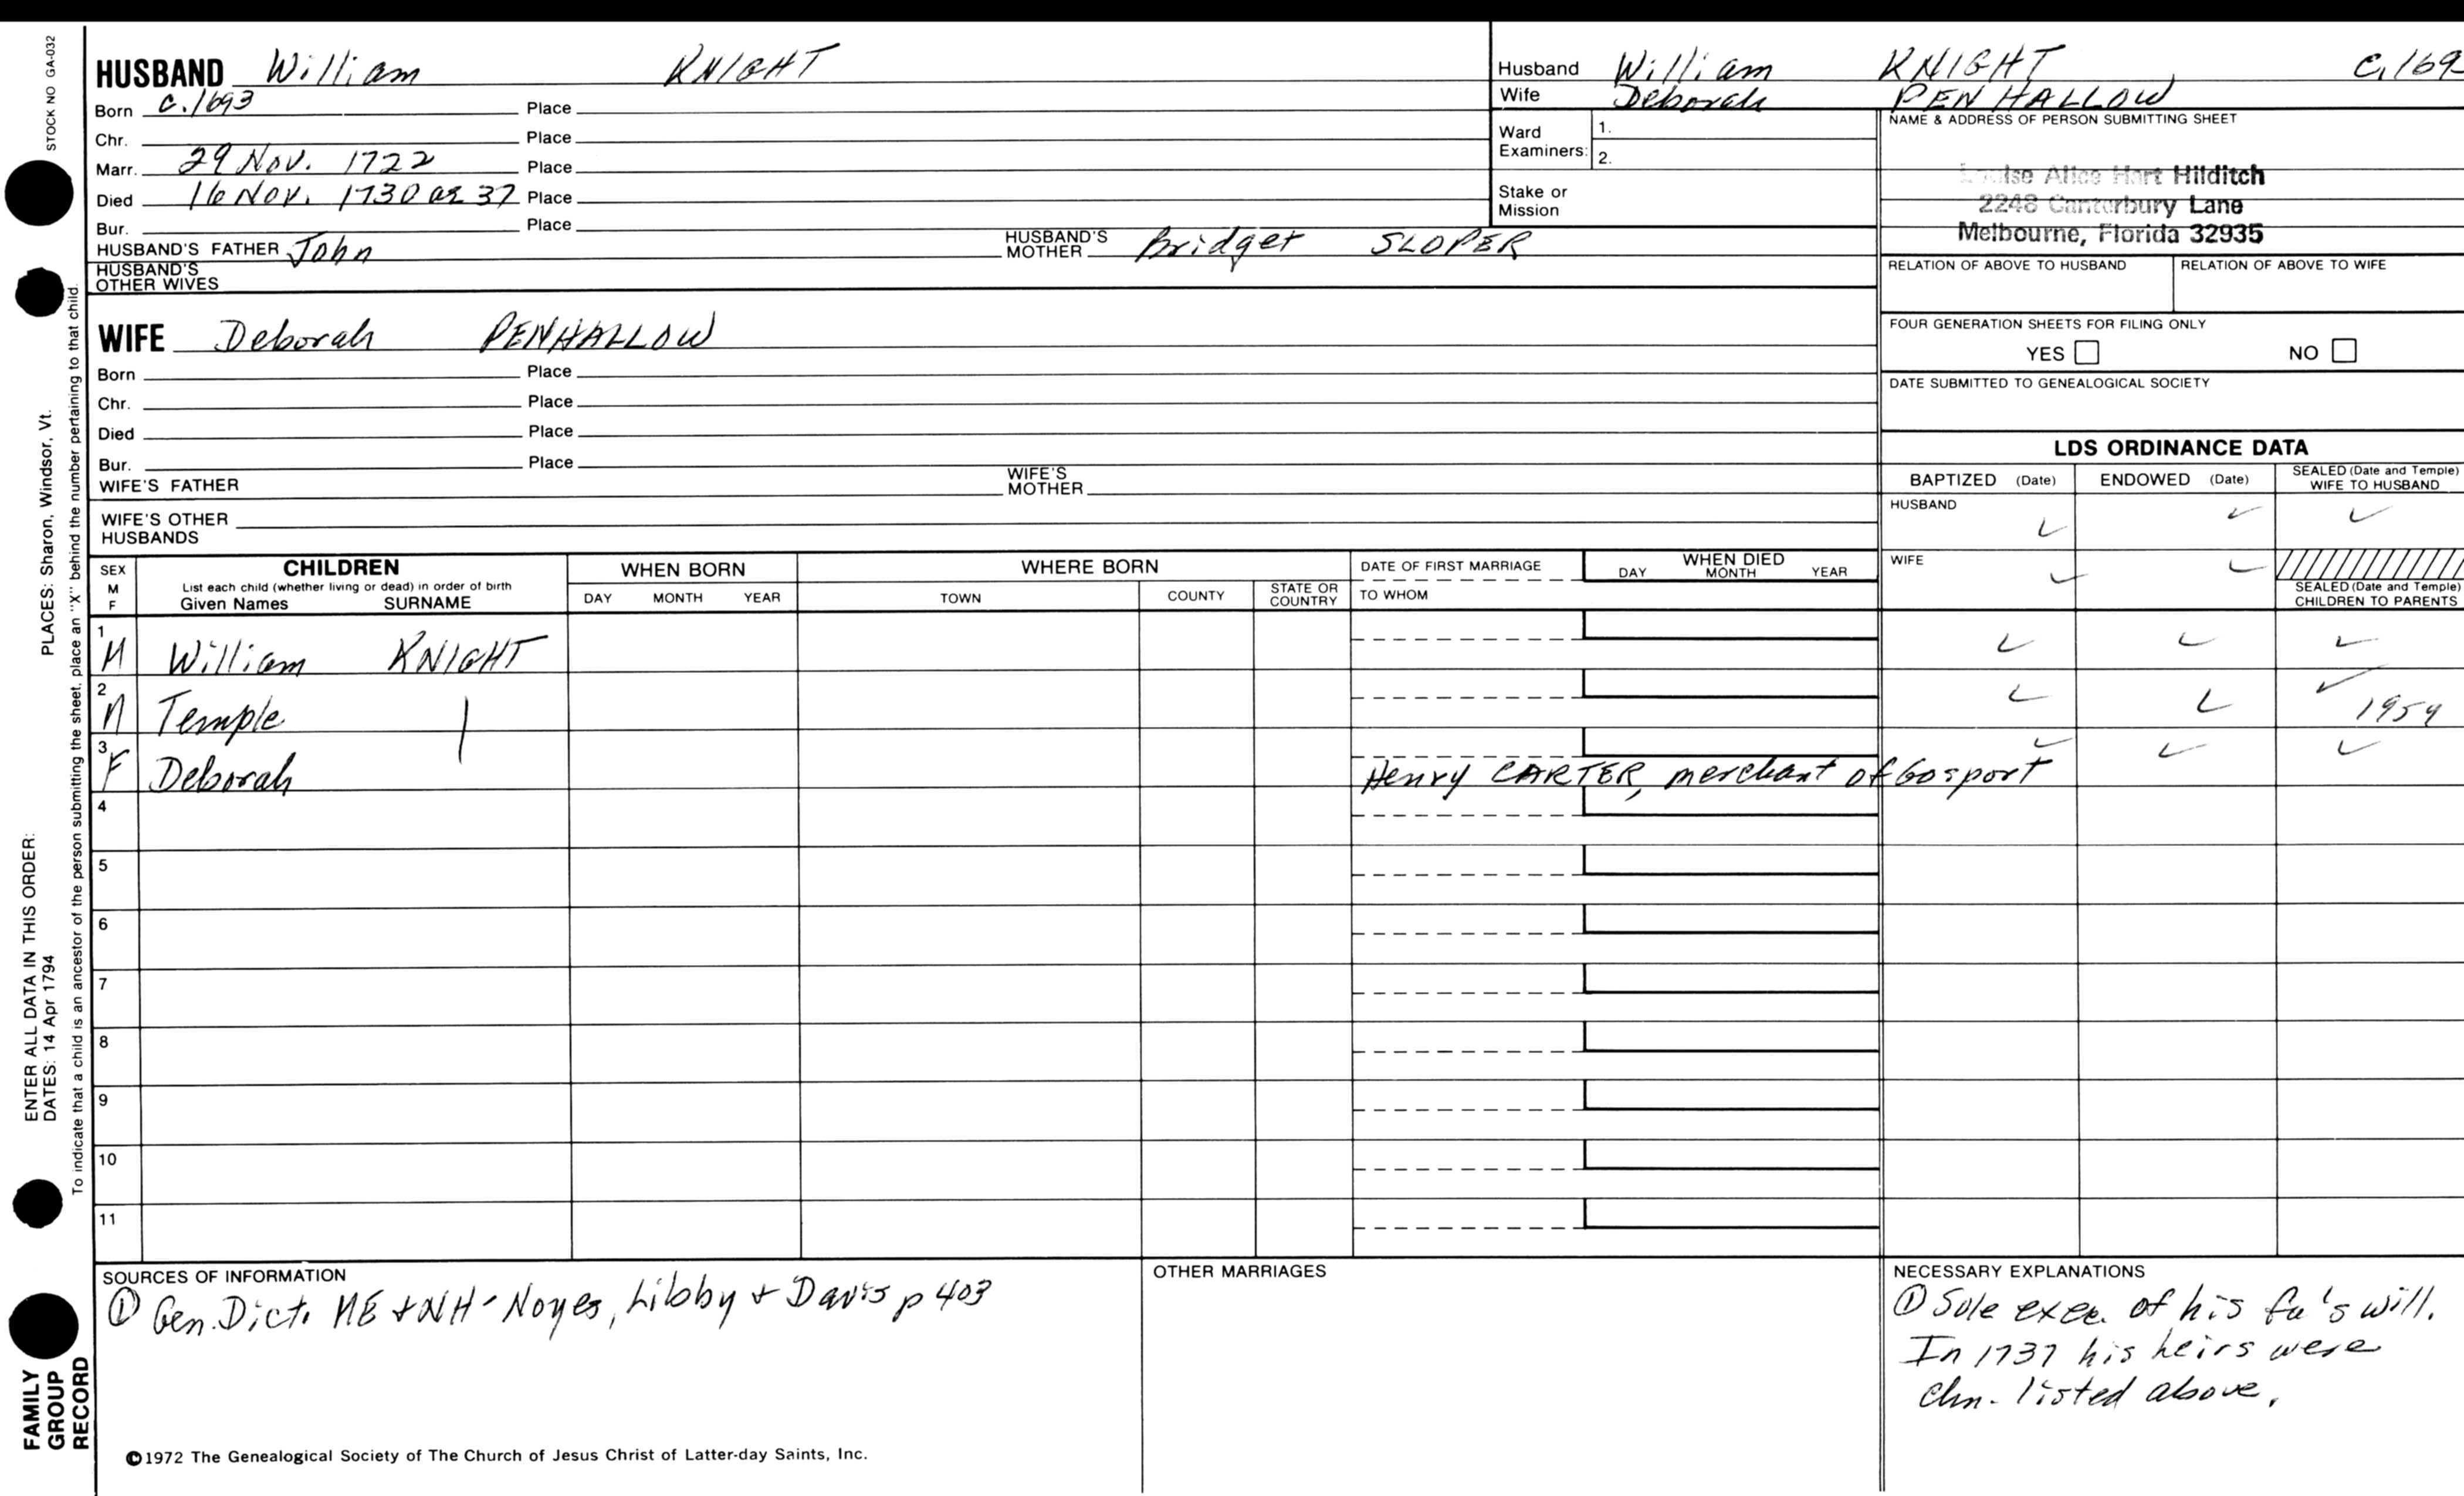 STOCK NO GA-032
HUSBAND William KNIGHT
Born c.1693 Place
Chr. Place
Marr. 29 Nov. 1722 Place
Died 16 Nov. 1730 ae 37 Place
Bur. Place
HUSBAND'S FATHER John HUSBAND'S MOTHER Bridget SLOPER
HUSBAND'S OTHER WIVES
Husband William KNIGHT c.169
Wife Deborah PENHALLOW
Ward Examiners: 1.
2.
Stake or Mission
NAME & ADDRESS OF PERSON SUBMITTING SHEET
Louise Alice Hart Hilditch
2248 Canterbury Lane
Melbourne, Florida 32935
RELATION OF ABOVE TO HUSBAND RELATION OF ABOVE TO WIFE
FOUR GENERATION SHEETS FOR FILING ONLY
YES NO
DATE SUBMITTED TO GENEALOGICAL SOCIETY
WIFE Deborah PENHALLOW
Born Place
Chr. Place
Died Place
Bur. Place
WIFE'S FATHER WIFE'S MOTHER
WIFE'S OTHER HUSBANDS
LDS ORDINANCE DATA
BAPTIZED (Date) ENDOWED (Date) SEALED (Date and Temple) WIFE TO HUSBAND
HUSBAND ✓ ✓ ✓
WIFE ✓ ✓
SEALED (Date and Temple) CHILDREN TO PARENTS
SEX M F
CHILDREN
List each child (whether living or dead) in order of birth
Given Names SURNAME
WHEN BORN
DAY MONTH YEAR
WHERE BORN
TOWN COUNTY STATE OR COUNTRY
DATE OF FIRST MARRIAGE
TO WHOM
WHEN DIED
DAY MONTH YEAR
1 M William KNIGHT ✓ ✓ ✓
2 M Temple | ✓ ✓ ✓ 1954
3 F Deborah Henry CARTER, merchant of Gosport ✓ ✓ ✓
4
5
6
7
8
9
10
11
SOURCES OF INFORMATION
① Gen. Dict. ME & NH - Noyes, Libby & Davis p 403
OTHER MARRIAGES
NECESSARY EXPLANATIONS
① Sole exec. of his fa's will.
In 1737 his heirs were
chn. listed above.
©1972 The Genealogical Society of The Church of Jesus Christ of Latter-day Saints, Inc.
PLACES: Sharon, Windsor, Vt.
ENTER ALL DATA IN THIS ORDER:
DATES: 14 Apr 1794
To indicate that a child is an ancestor of the person submitting the sheet, place an "X" behind the number pertaining to that child.
FAMILY
GROUP
RECORD